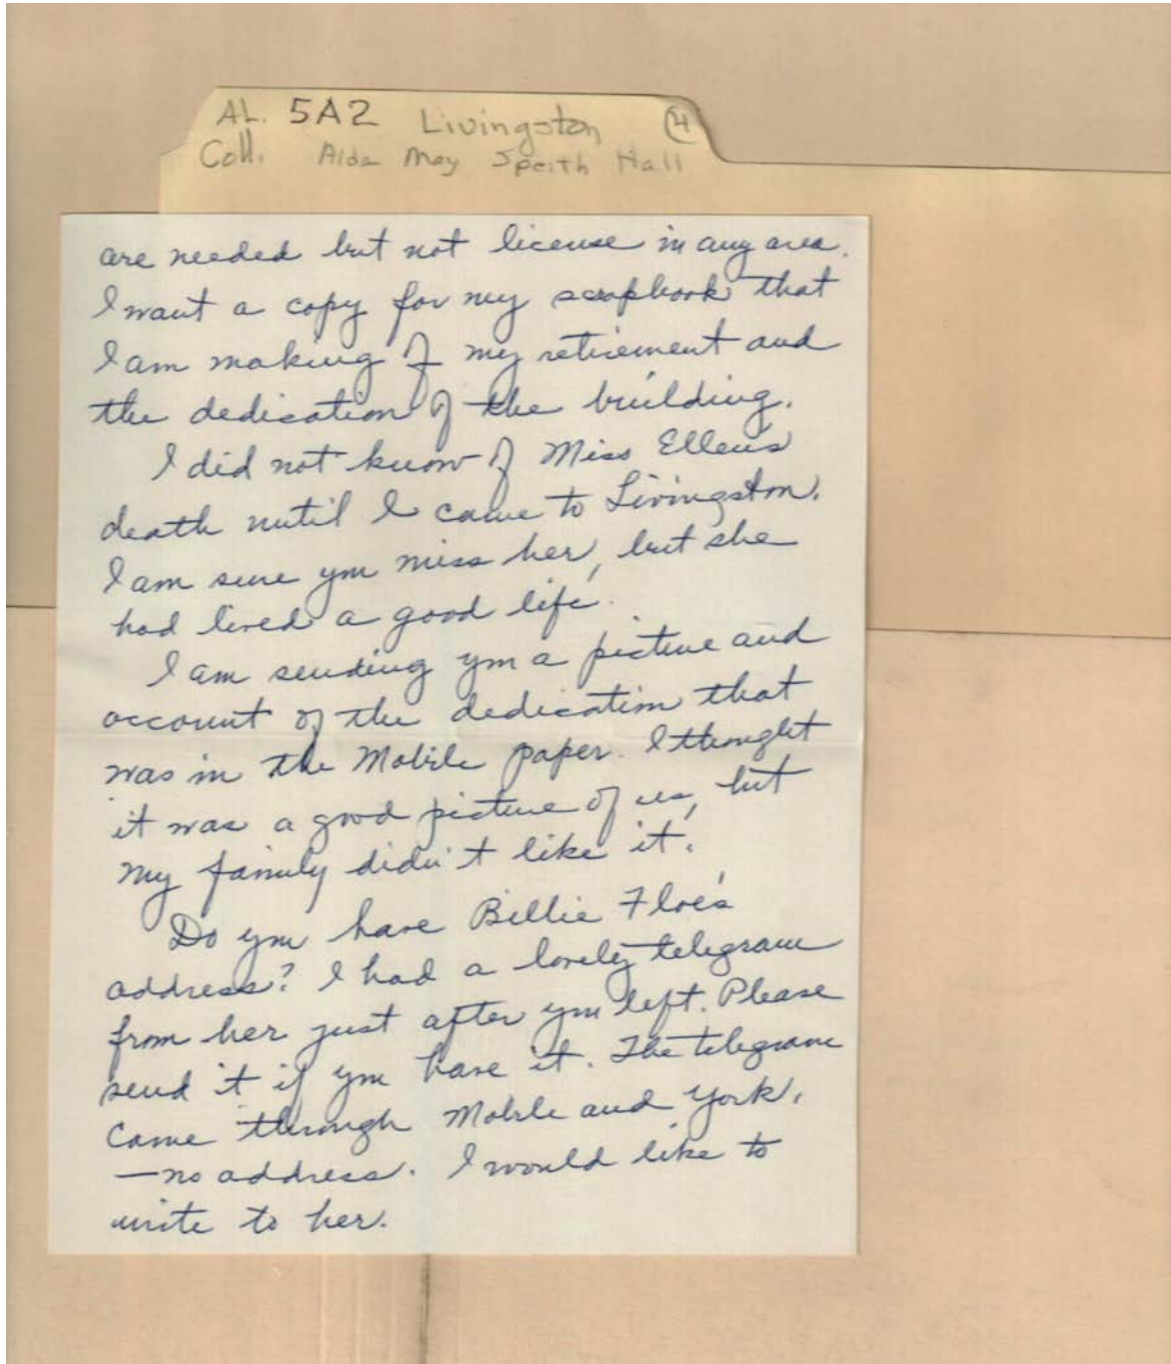 AL. 5A2 Livingston (4)
Coll. Alda May Speith Hall
are needed but not license in any area.
I want a copy for my scrapbook that
I am making of my retirement and
the dedication of the building.
I did not know of Miss Ellen's
death until I came to Livingston.
I am sure you miss her, but she
had lived a good life.
I am sending you a picture and
account of the dedication that
was in the Mobile paper. I thought
it was a good picture of us, but
my family didn't like it.
Do you have Billie Floe's
address? I had a lovely telegram
from her just after you left. Please
send it if you have it. The telegram
came through Mobile and York.
—no address. I would like to
write to her.